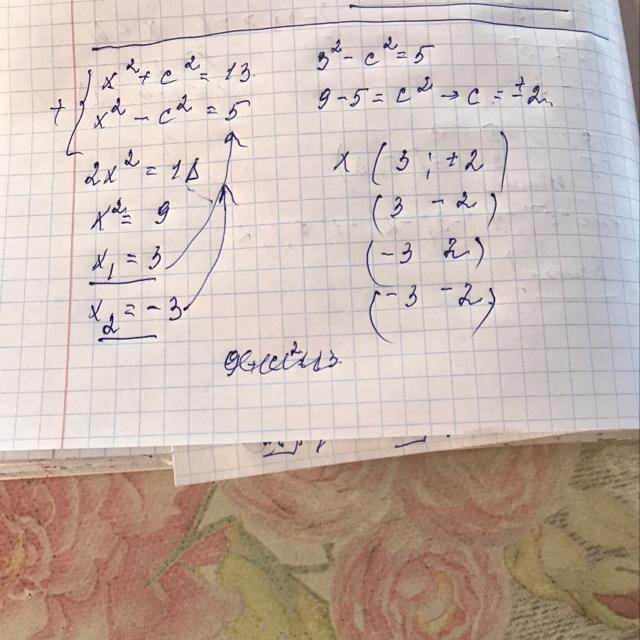 + { x² + c² = 13
x² - c² = 5
2x² = 18
x² = 9
x₁ = 3
x₂ = -3
3² - c² = 5
9 - 5 = c² → c = ±2
x ( 3 ; +2 )
( 3 -2 )
( -3 2 )
( -3 -2 )